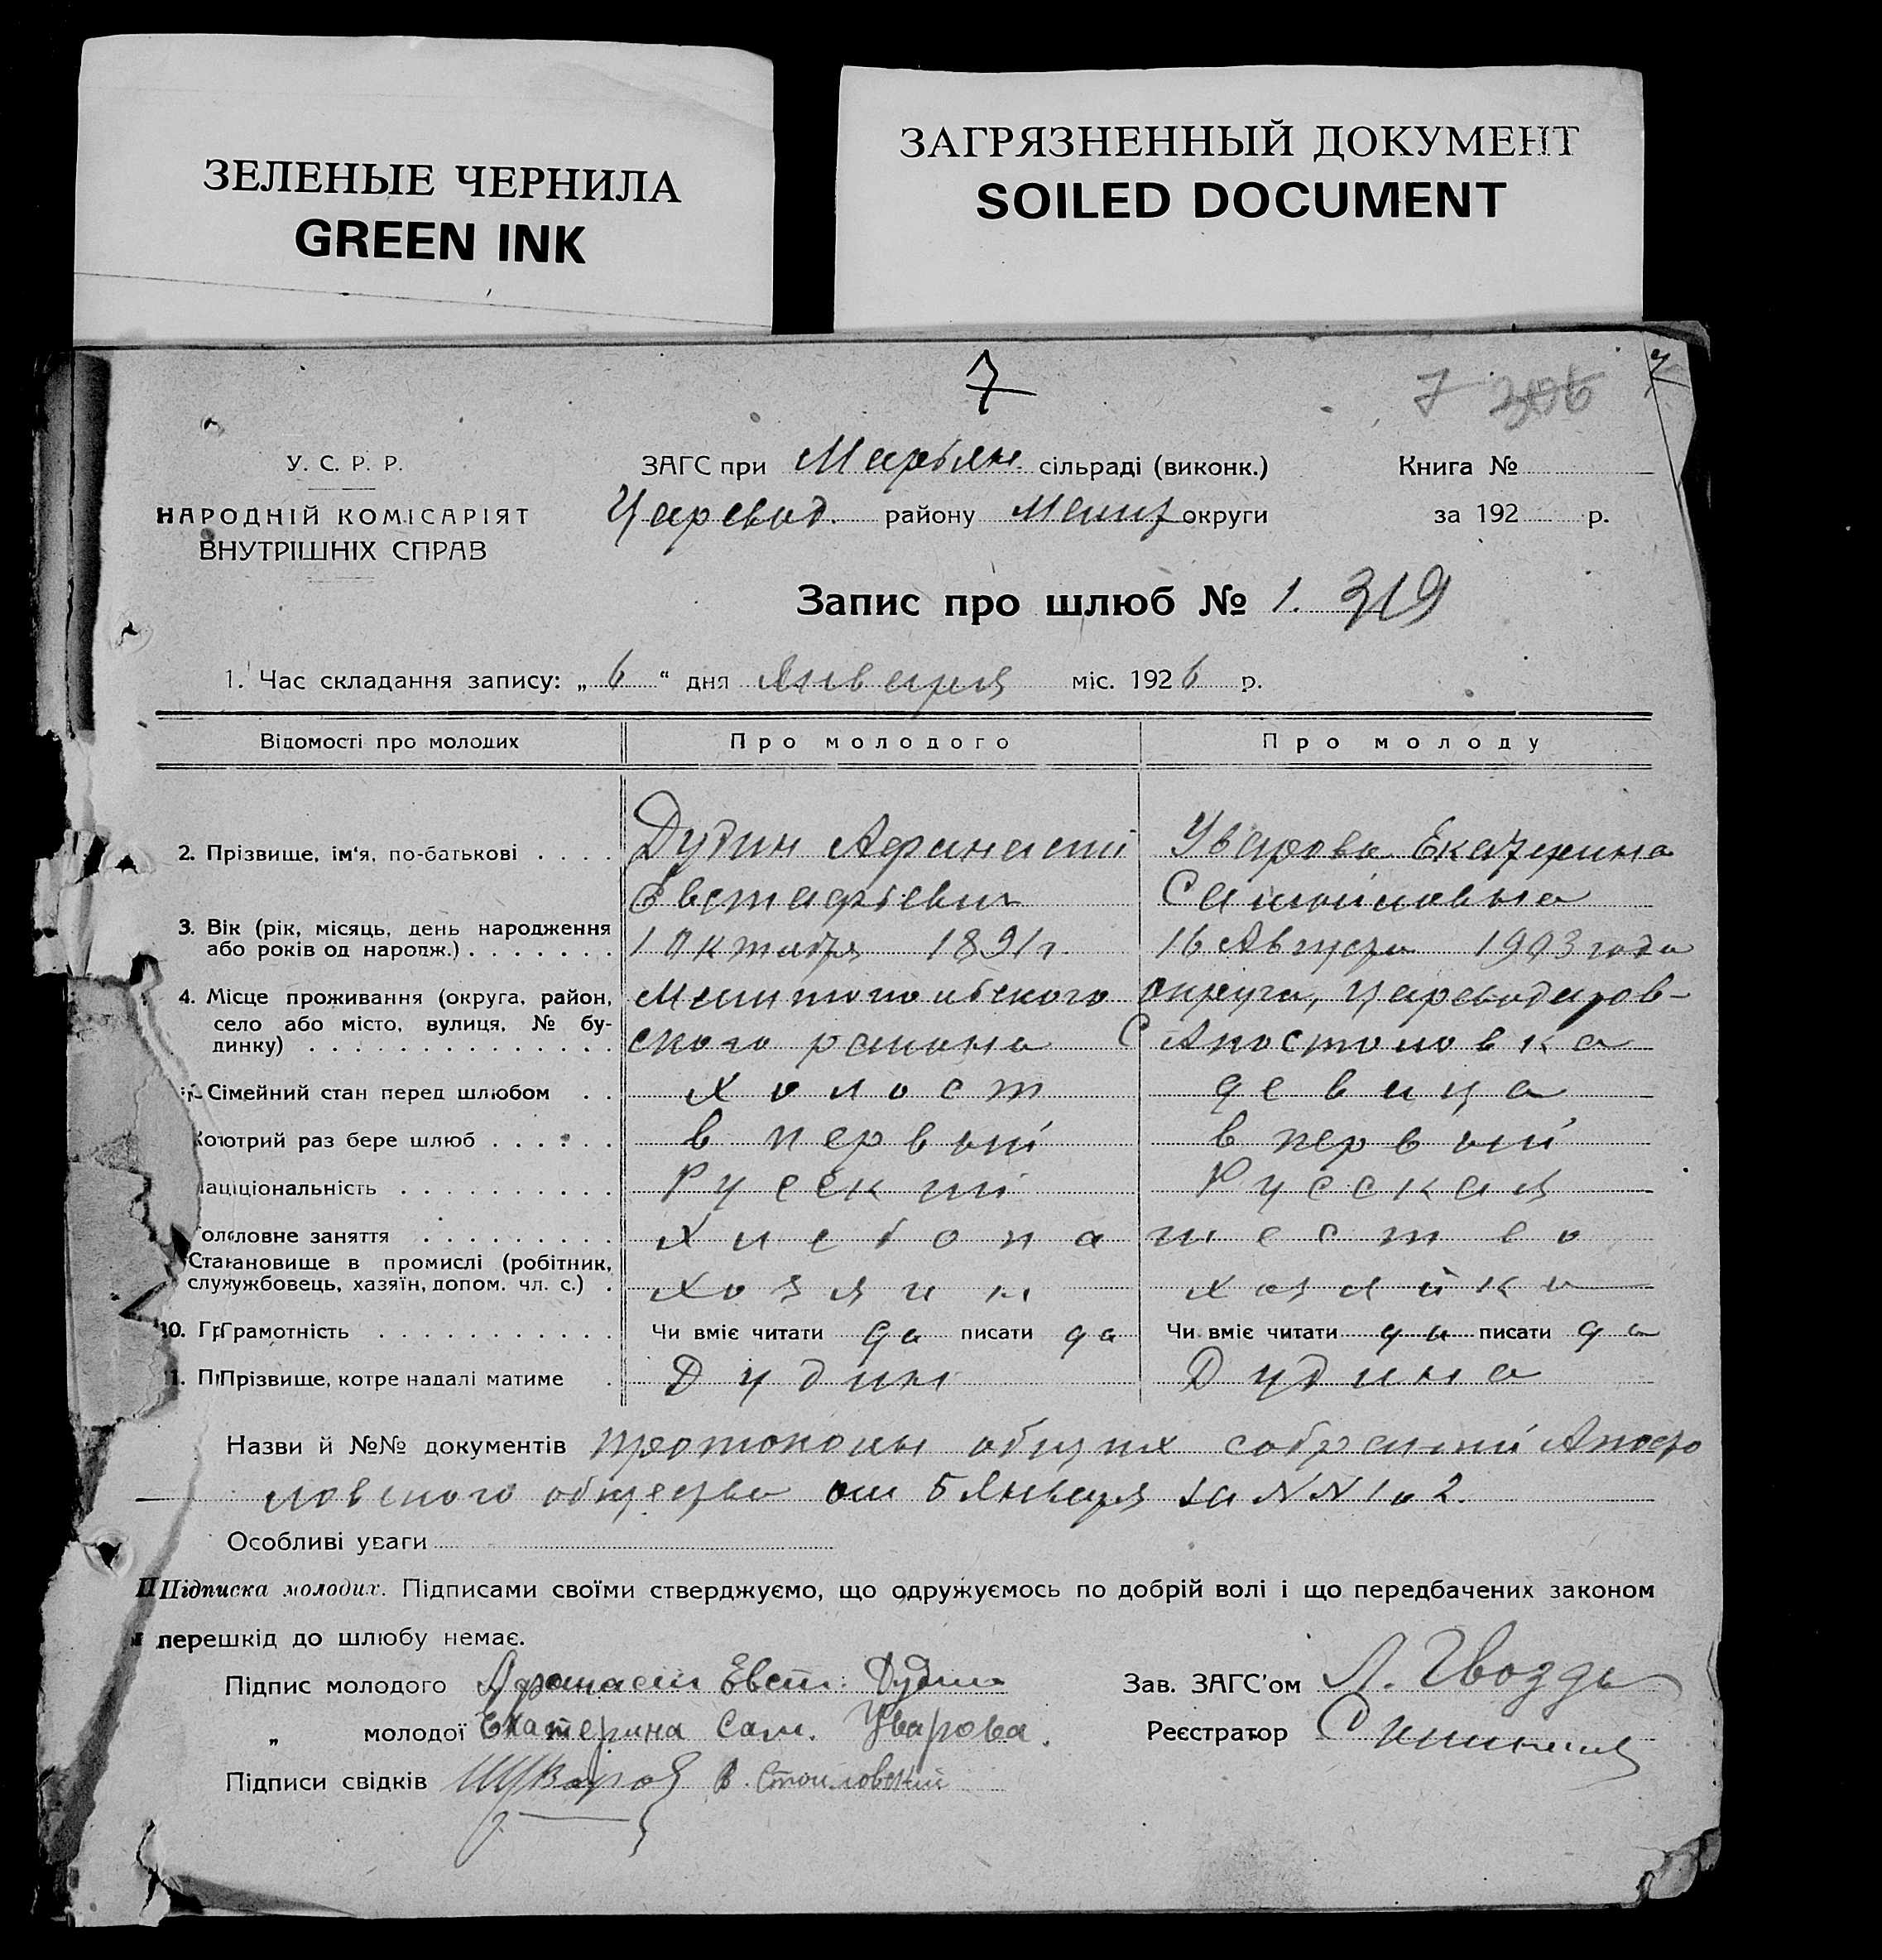 ЗЕЛЕНЫЕ ЧЕРНИЛА
GREEN INK
ЗАГРЯЗНЕННЫЙ ДОКУМЕНТ
SOILED DOCUMENT
7
7 306
7
У. С. Р. Р.
НАРОДНІЙ КОМІСАРІЯТ
ВНУТРІШНІХ СПРАВ
ЗАГС при Марьян. сільраді (виконк.)
Царевод. району Мелит округи
Книга №
за 192 р.
Запис про шлюб № 1. 319
1. Час складання запису: „ 6 “ дня Января міс. 192 6 р.
Відомості про молодих Про молодого Про молоду
2. Прізвище, ім'я, по-батькові Дудин Афанасий Уварова Екатерина
Евстафьевич Самойловна
3. Вік (рік, місяць, день народження
або років од народж.) 1 Октября 1891 г. 16 Августа 1903 года
4. Місце проживання (округа, район, Мелитопольского округа, Цареводаров-
село або місто, вулиця, № бу-
динку) ского района С Апостоловка
Сімейний стан перед шлюбом холост девица
Котрий раз бере шлюб в первый в первый
Національність Русский Русская
Головне заняття Хлебопашество
Становище в промислі (робітник,
службовець, хазяїн, допом. чл. с.) хозяин хозяйка
10. Грамотність Чи вміє читати да писати да Чи вміє читати да писати да
11. Прізвище, котре надалі матиме Дудин Дудина
Назви й №№ документів протоколы общих собраний Апосто
ловского общества от 5 Января за NN 1 и 2.
Особливі уваги
Підписка молодих. Підписами своїми стверджуємо, що одружуємось по добрій волі і що передбачених законом
перешкід до шлюбу немає.
Підпис молодого Афанасий Евст. Дудин
Зав. ЗАГС'ом Л. Гвоздь
„ молодої Екатерина Сам. Уварова.
Реєстратор
Підписи свідків В. Стоиловский